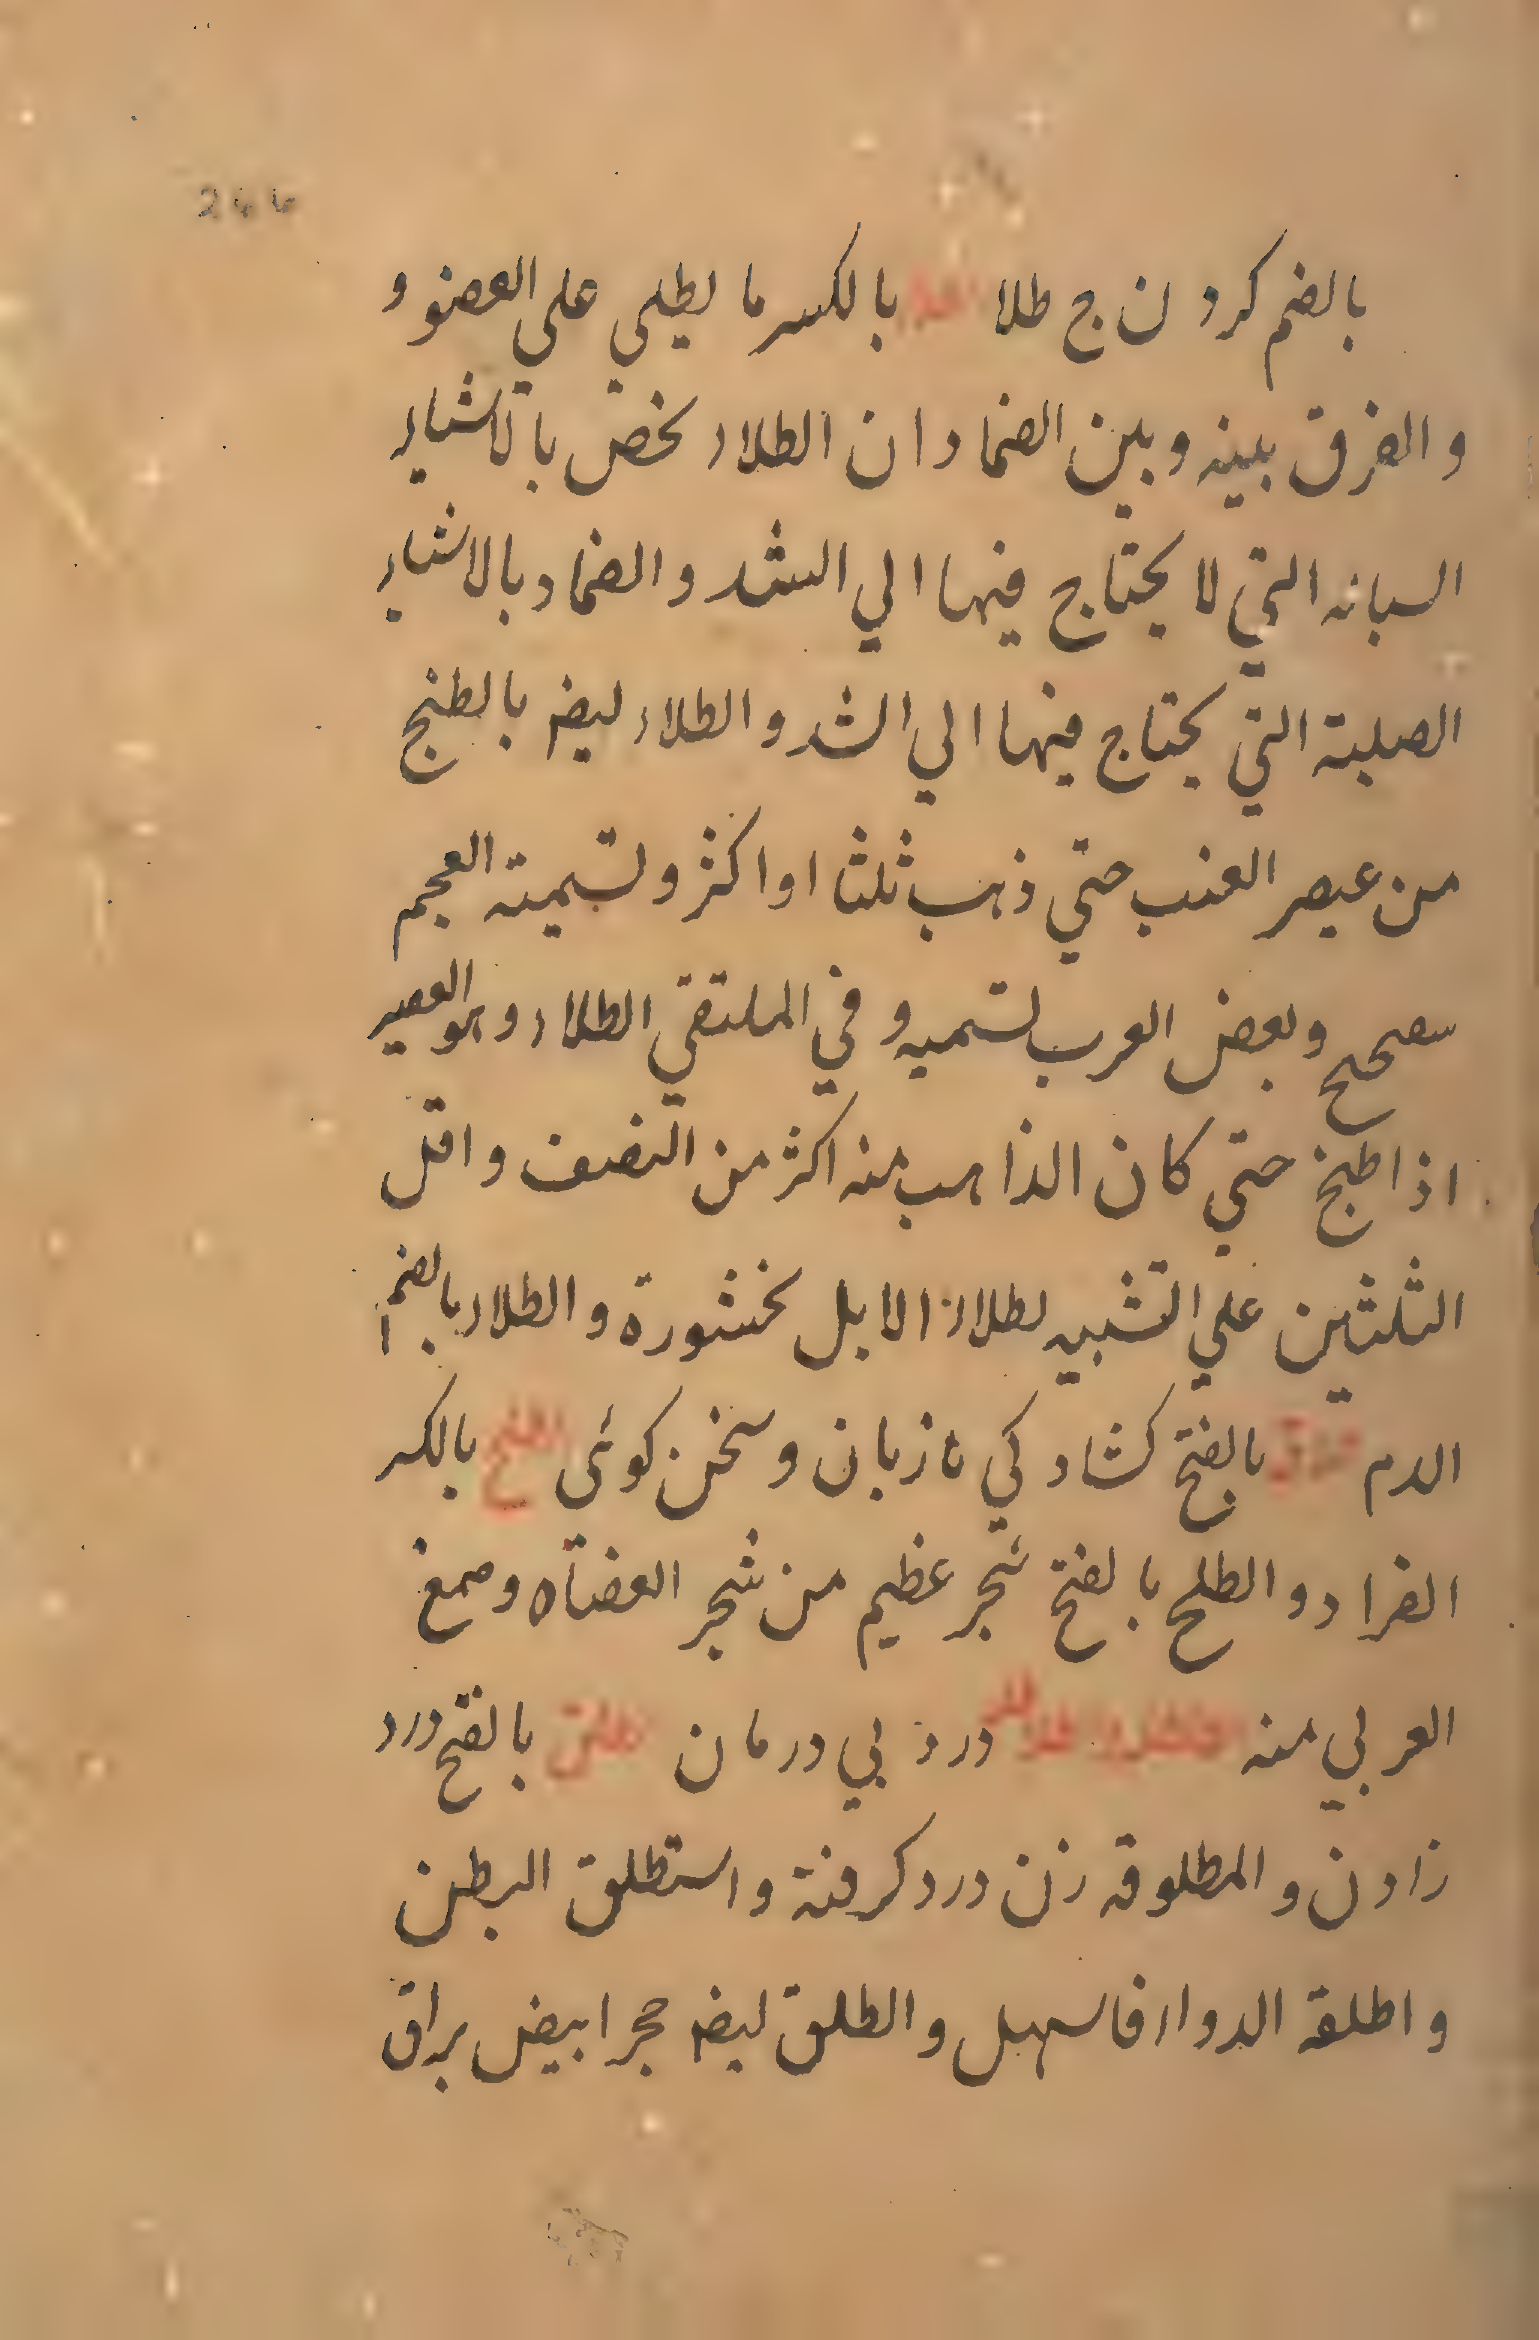 244
بالضم كردن ج طلا بالكسر ما يطلي علي العضو و
و الفرق بينه و بين الضماد ان الطلاء يخص بالاشياء
السيانه التي لا يحتاج فيها الي الشد و الضماد بالاشياء
الصلبة التي يحتاج فيها الي الشد و الطلاء ليضا بالطبخ
من عصير العنب حتي ذهب ثلثا او اكثر و تسميته العجم
و بعض العرب تسميه و في الملتقي الطلاء و هو العصير
اذا طبخ حتي كان الذاهب منه اكثر من النصف و اقل
الثلثين علي التشبيه بطلاء الابل بخشورة و الطلاء بالضم
الدم طلاقة بالفتح كشادكي زبان و سخن كوئى الطلح بالكسر
القراد و الطلح بالفتح شجر عظيم من شجر العضاه و صمغ
العربي منه درد بي درمان طلق بالفتح درد
زادن و المطلوقه زن درد كرفته و استطلق البطن
و اطلقه الدواء فاسهل و الطلق ليضا حجر ابيض براق